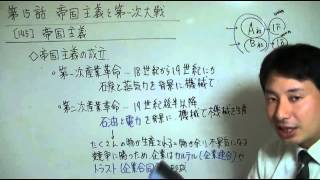 第15話 帝国主義と第一次大戦
[145] 帝国主義
◇帝国主義の成立
・第一次産業革命－18世紀から19世紀にか
石炭と蒸気力を背景に機械で
・第二次産業革命－19世紀後半以降
石油と電力を背景に、機械で機械を生産
↓
たくさんの物が生産される→働き余り、不景気になる
競争に勝つため、企業はカルテル(企業連合)や
トラスト(企業合同)
A
B